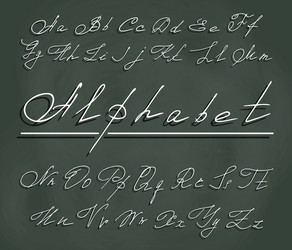 Aa Bb Cc Dd Ee Ff
Gg Hh Ii Jj Kk Ll Mm
Alphabet
Nn Oo Pp Qq Rr Ss Tt
Uu Vv Ww Xx Yy Zz